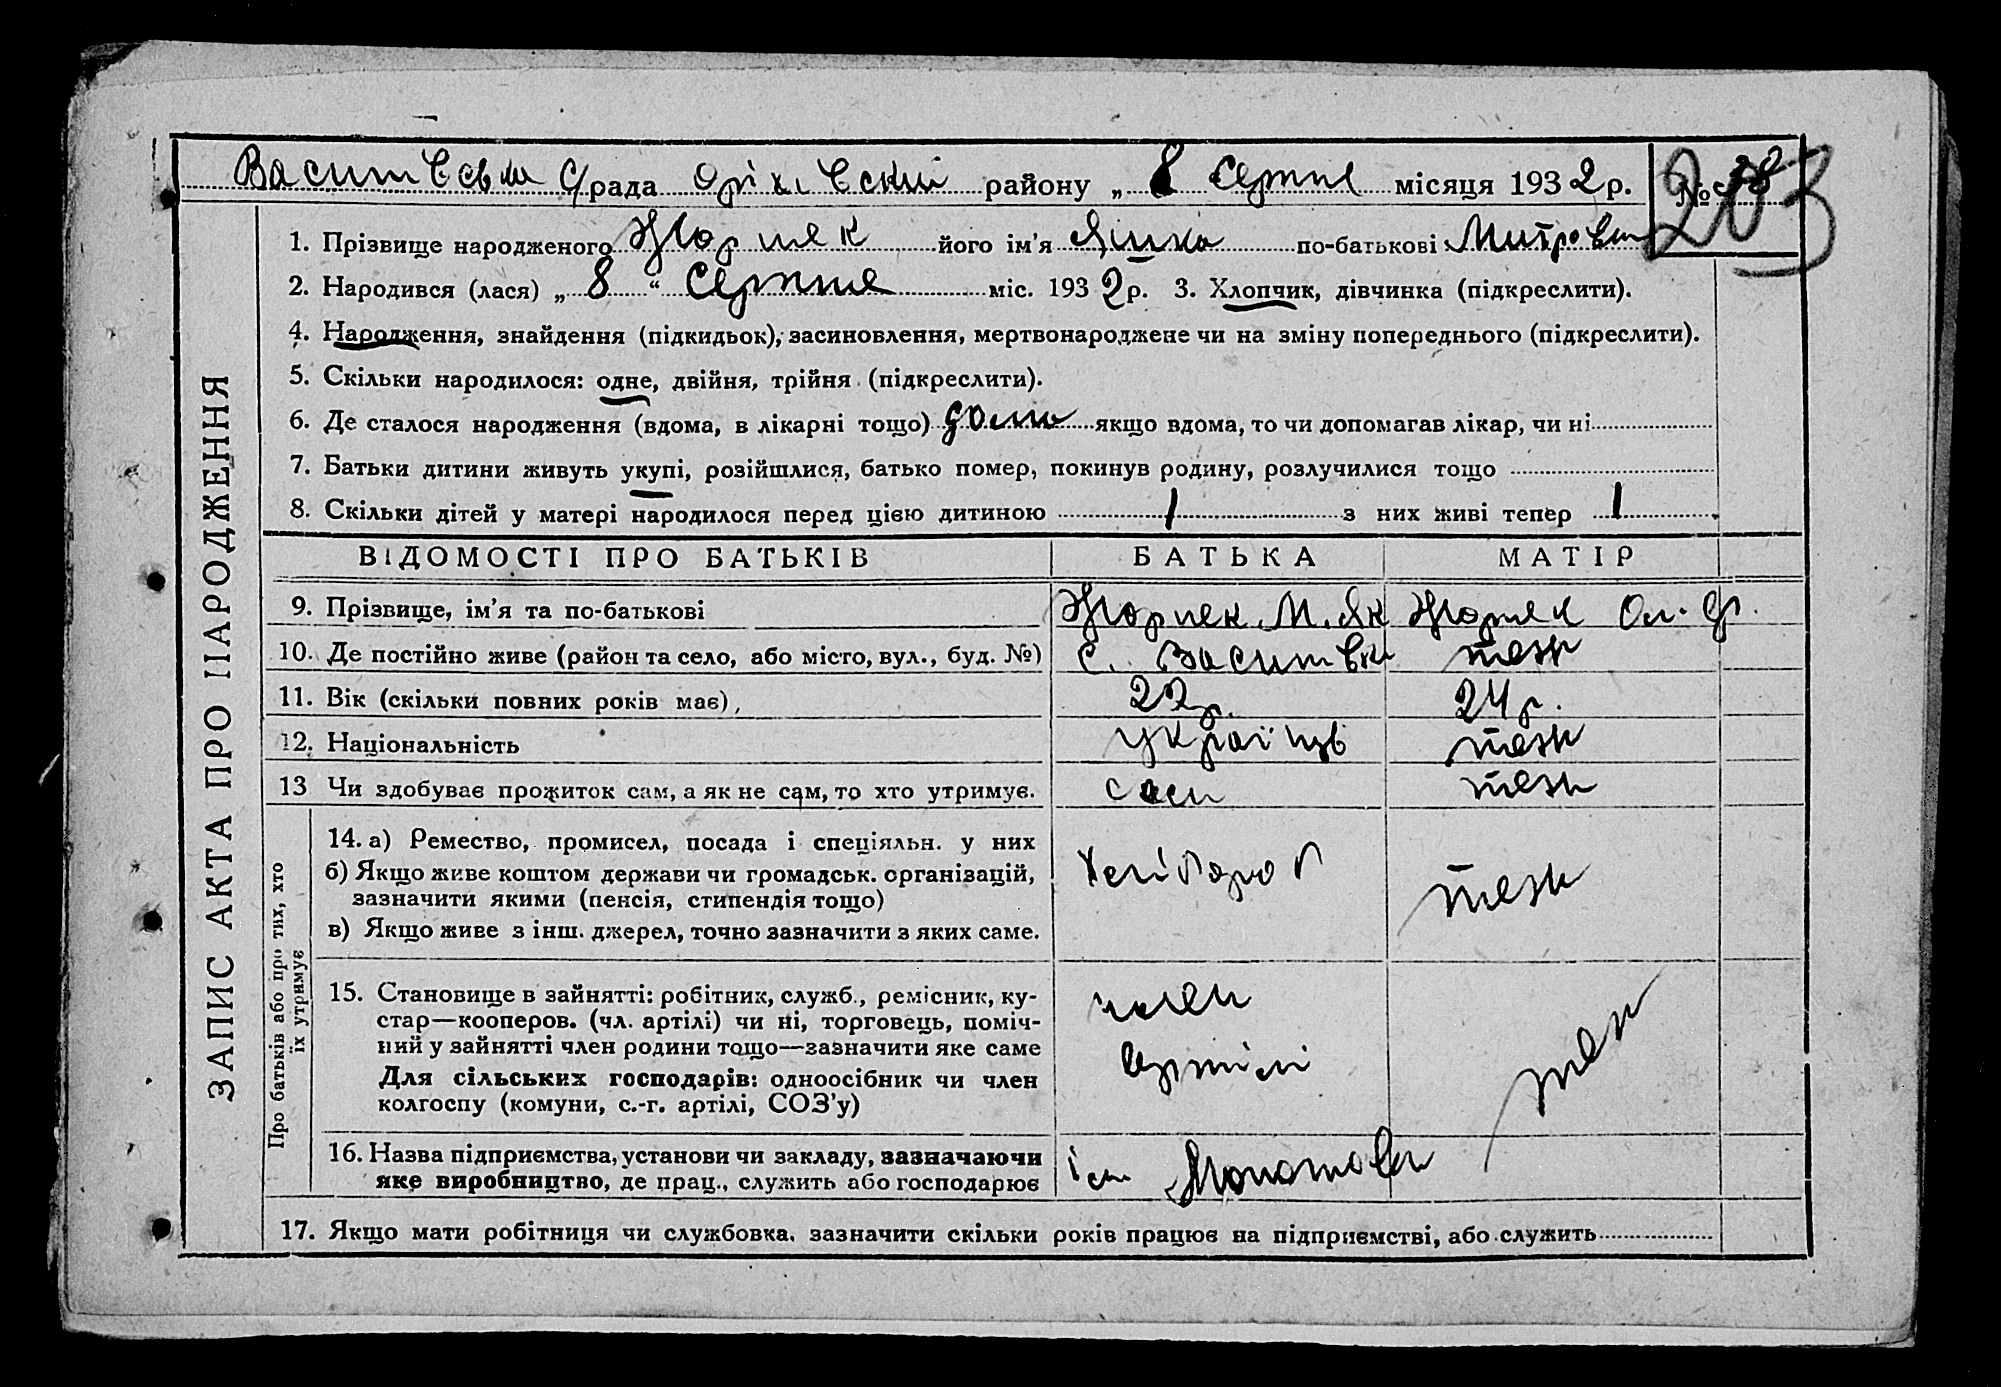 Василівська с/рада Оріхівський району „ 8 Серпня місяця 1932 р. № 38
203
1. Прізвище народженого його ім'я Яшка по-батькові Митров
2. Народився (лася) „ 8 “ Серпня міс. 1932 р. 3. Хлопчик, дівчинка (підкреслити).
4. Народження, знайдення (підкидьок), засиновлення, мертвонароджене чи на зміну попереднього (підкреслити).
5. Скільки народилося: одне, двійня, трійня (підкреслити).
6. Де сталося народження (вдома, в лікарні тощо) дома якщо вдома, то чи допомагав лікар, чи ні
7. Батьки дитини живуть укупі, розійшлися, батько помер, покинув родину, розлучилися тощо
8. Скільки дітей у матері народилося перед цією дитиною 1 з них живі тепер 1
ЗАПИС АКТА ПРО НАРОДЖЕННЯ
ВІДОМОСТІ ПРО БАТЬКІВ БАТЬКА МАТІР
9. Прізвище, ім'я та по-батькові М. Як
10. Де постійно живе (район та село, або місто, вул., буд. №) с. Василівка теж
11. Вік (скільки повних років має), 22 р. 24 р.
12. Національність українці теж
13 Чи здобуває прожиток сам, а як не сам, то хто утримує. сам теж
Про батьків або про тих, хто їх утримує
14. а) Ремество, промисел, посада і спеціяльн. у них
б) Якщо живе коштом держави чи громадськ. організацій,
зазначити якими (пенсія, стипендія тощо)
в) Якщо живе з інш. джерел, точно зазначити з яких саме.
хлібороб теж
15. Становище в зайнятті: робітник, служб., ремісник, ку-
стар—кооперов. (чл. артілі) чи ні, торговець, поміч-
ний у зайнятті член родини тощо—зазначити яке саме
Для сільських господарів: одноосібник чи член
колгоспу (комуни, с.-г. артілі, СОЗ'у)
член
артілі
теж
16. Назва підприємства, установи чи закладу, зазначаючи
яке виробництво, де прац., служить або господарює
ім
17. Якщо мати робітниця чи службовка, зазначити скільки років працює на підприємстві, або служить